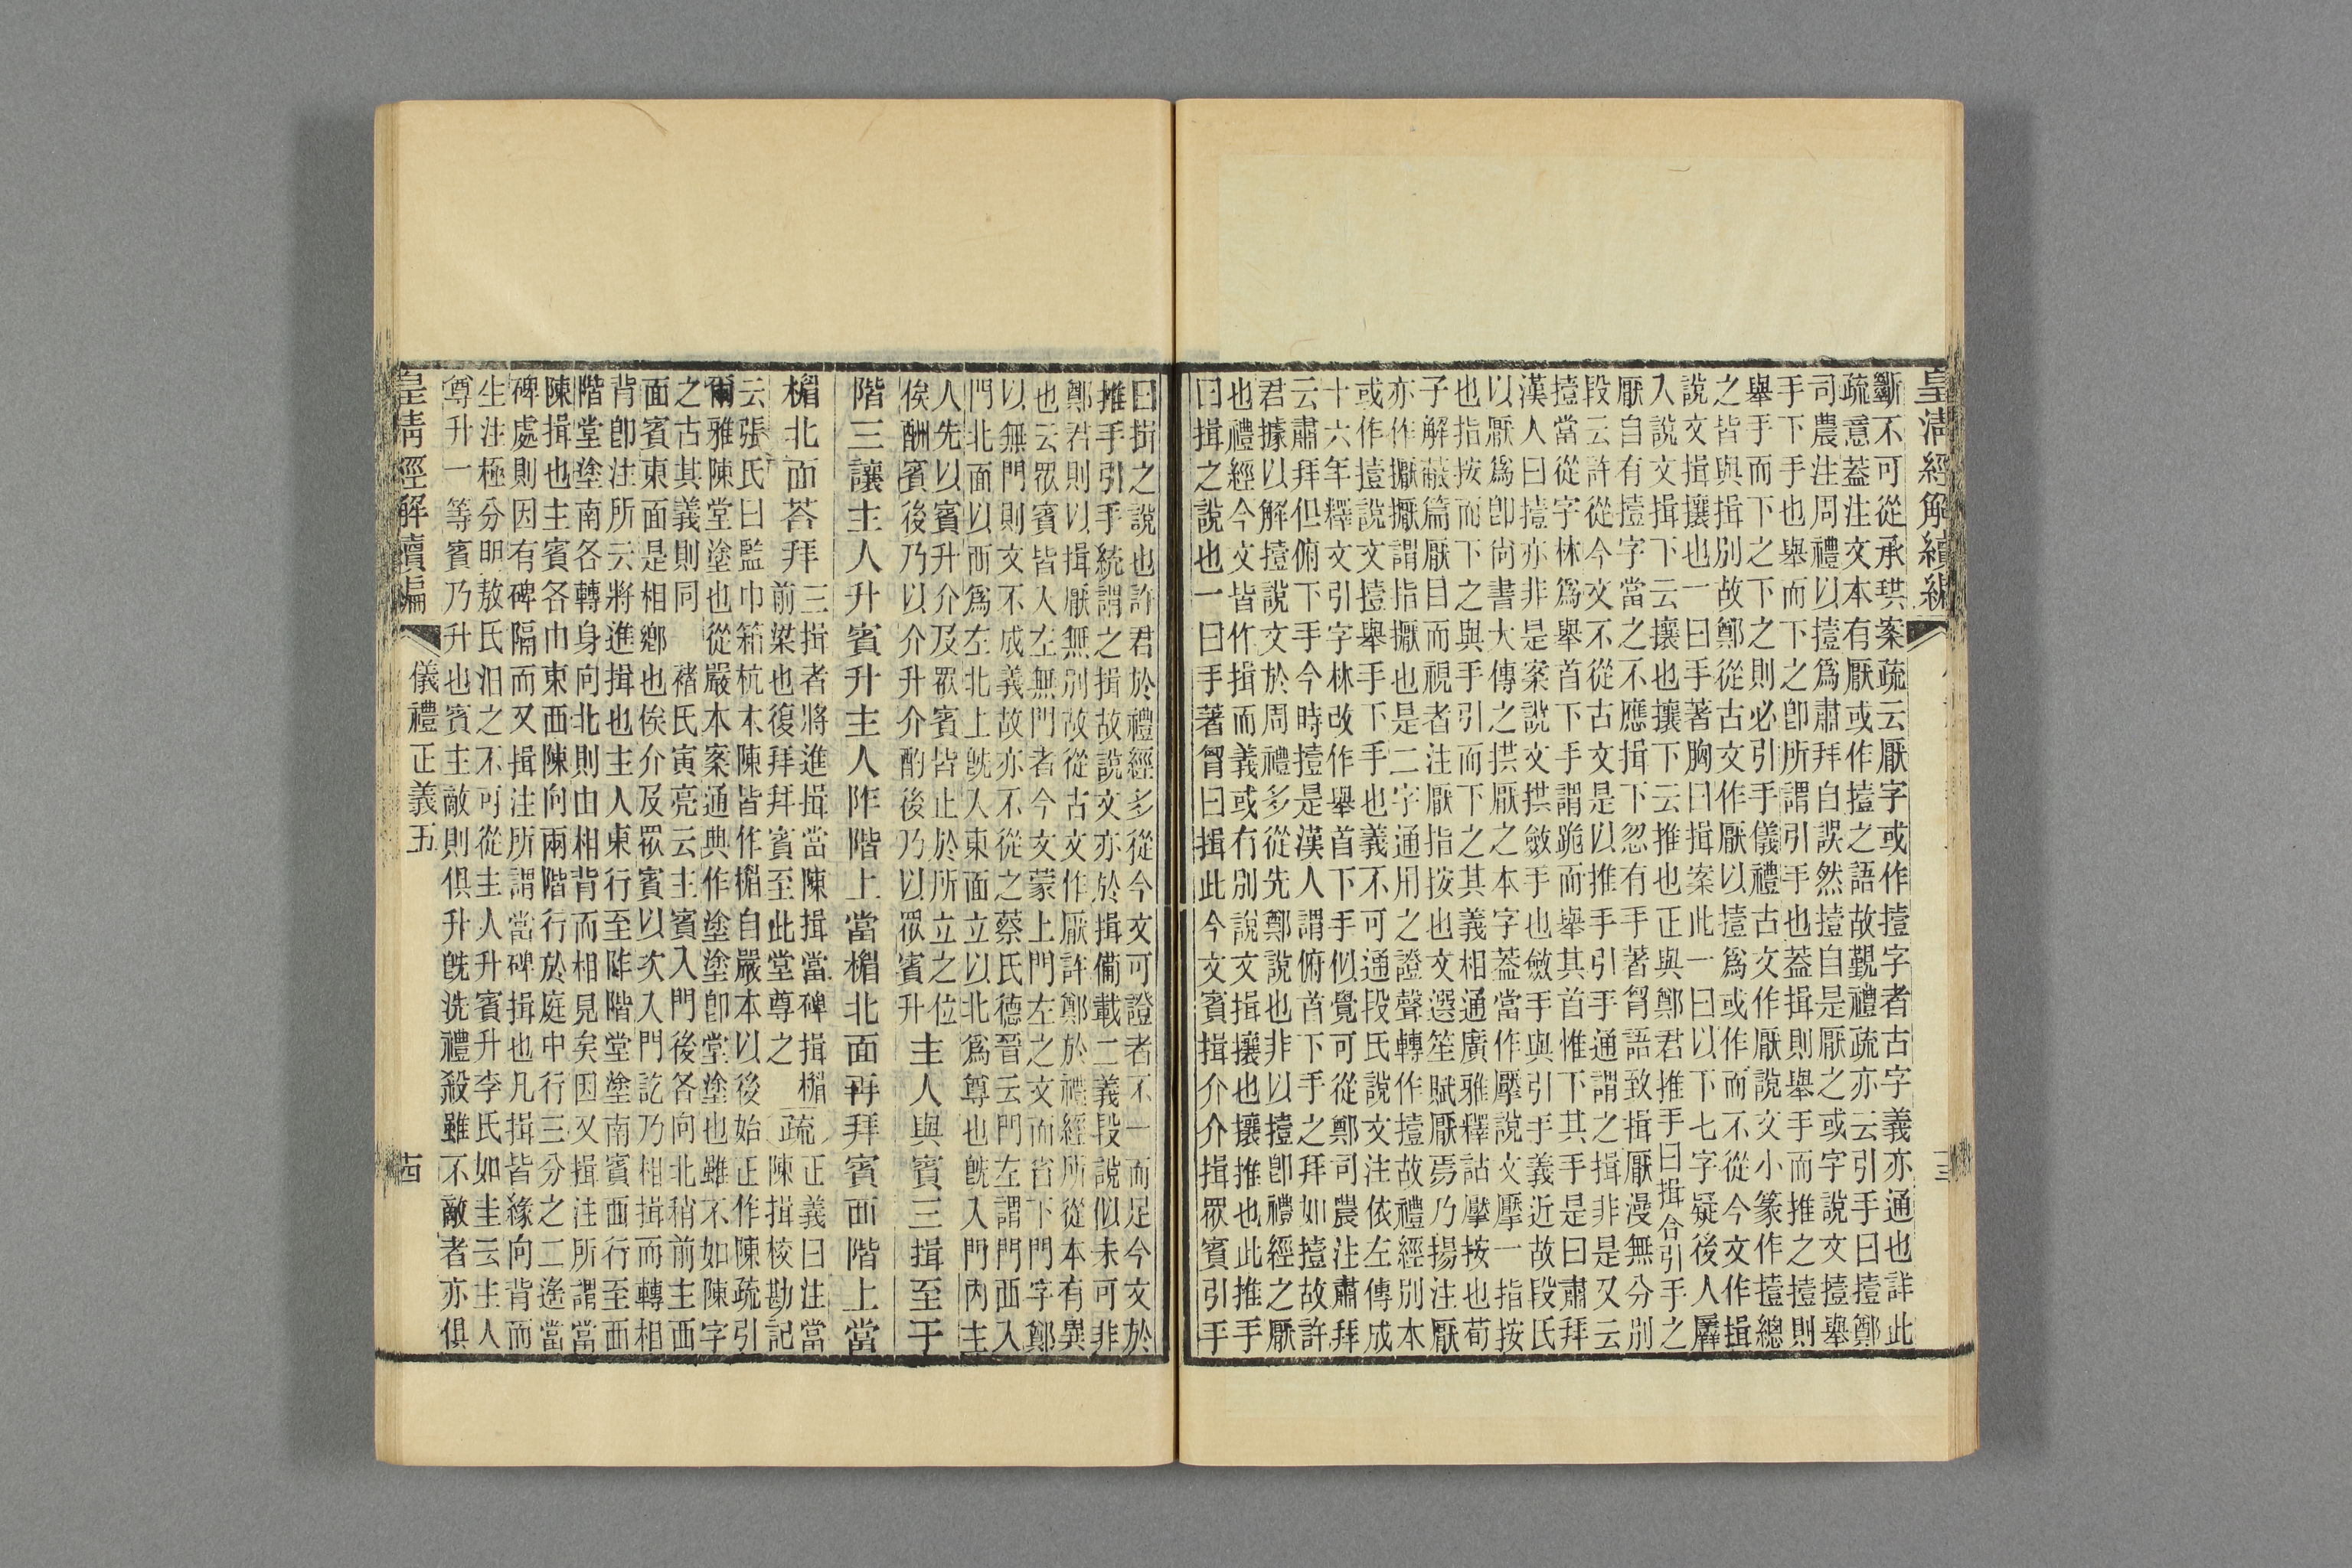 皇清經解續編
斷不可從承珙案疏云厭字或作撎字者古字義亦通也詳此
疏意蓋注文本有厭或作撎之語故覲禮疏亦云引手曰撎鄭
司農注周禮以撎爲肅拜自誤然撎自是厭之或字說文撎舉
手下手也舉而下之卽所謂引手也蓋揖則舉手而推之撎則
舉手而下之下之則必引手儀禮古文作厭說文小篆作撎總
之皆與揖別故鄭從古文作厭以撎爲或作而不從今文作揖
說文揖攘也一曰手著胸曰揖案此一曰以下七字疑後人羼
入說文揖下云攘也攘下云推也正與鄭君推手曰揖合引手之
厭自有撎字當之不應揖下忽有手著胷語致揖厭漫無分別
段云許從今文不從古文是以推手引手通謂之揖非是又云
撎當從字林爲舉首下手謂跪而舉其首惟下其手是曰肅拜
漢人曰撎亦非是案說文拱斂手也斂手與引手義近故段氏
以厭爲卽尚書大傳之拱厭之本字蓋當作擪說文擪一指按
也指按而下之與手引而下之其義相通廣雅釋詁擪按也荀
子解蔽篇厭目而視者注厭指按也文選笙賦厭焉乃揚注厭
亦作擫擫謂指擫也是二字通用之證聲轉作撎故禮經別本
或作撎說文撎舉手下手也義不可通段氏說文注依左傳成
十六年釋文引字林改作舉首下手似覺可從鄭司農注肅拜
云肅拜但俯下手今時撎是漢人謂俯首下手之拜如撎故許
君據以解撎說文於周禮多從先鄭說也非以撎卽禮經之厭
也禮經今文皆作揖而義或有別說文揖攘也攘推也此推手
曰揖之說也一曰手著胷曰揖此今文賓揖介介揖眾賓引手
曰揖之說也許君於禮經多從今文可證者不一而足今文於
推手引手統謂之揖故說文亦於揖備載二義段說似未可非
鄭君則以揖厭無別故從古文作厭許鄭於禮經所從本有異
也云眾賓皆入左無門者今文蒙上門左之文而省下門字鄭
以無門則文不成義故亦不從之蔡氏德晉云門左謂門西入
門北面以西爲左北上旣入東面立以北爲尊也旣入門內主
人先以賓升介及眾賓皆止於所立之位
俟酬賓後乃以介升介酌後乃以眾賓升主人與賓三揖至于
階三讓主人升賓升主人阼階上當楣北面再拜賓西階上當
楣北面荅拜三揖者將進揖當陳揖當碑揖楣疏正義曰注當
前梁也復拜拜賓至此堂尊之陳揖校勘記
云張氏曰監巾箱杭本陳皆作楣自嚴本以後始正作陳疏引
爾雅陳堂塗也從嚴本案通典作塗塗卽堂塗也雖不如陳字
之古其義則同褚氏寅亮云主賓入門後各向北稍前主西
面賓東面是相鄉也俟介及眾賓以次入門訖乃相揖而轉相
背卽注所云將進揖也主人東行至阼階堂塗南賓西行至西
階堂塗南各轉身向北則由相背而相見矣因又揖注所謂當
陳揖也主賓各巾東西陳向兩階行於庭中行三分之二逢當
碑處則因有碑隔而又揖注所謂當碑揖也凡揖皆緣向背而
生注極分明敖氏汨之不可從主人升賓升李氏如圭云主人
尊升一等賓乃升也賓主敵則俱升旣洗禮殺雖不敵者亦俱
皇清經解續編
儀禮正義五